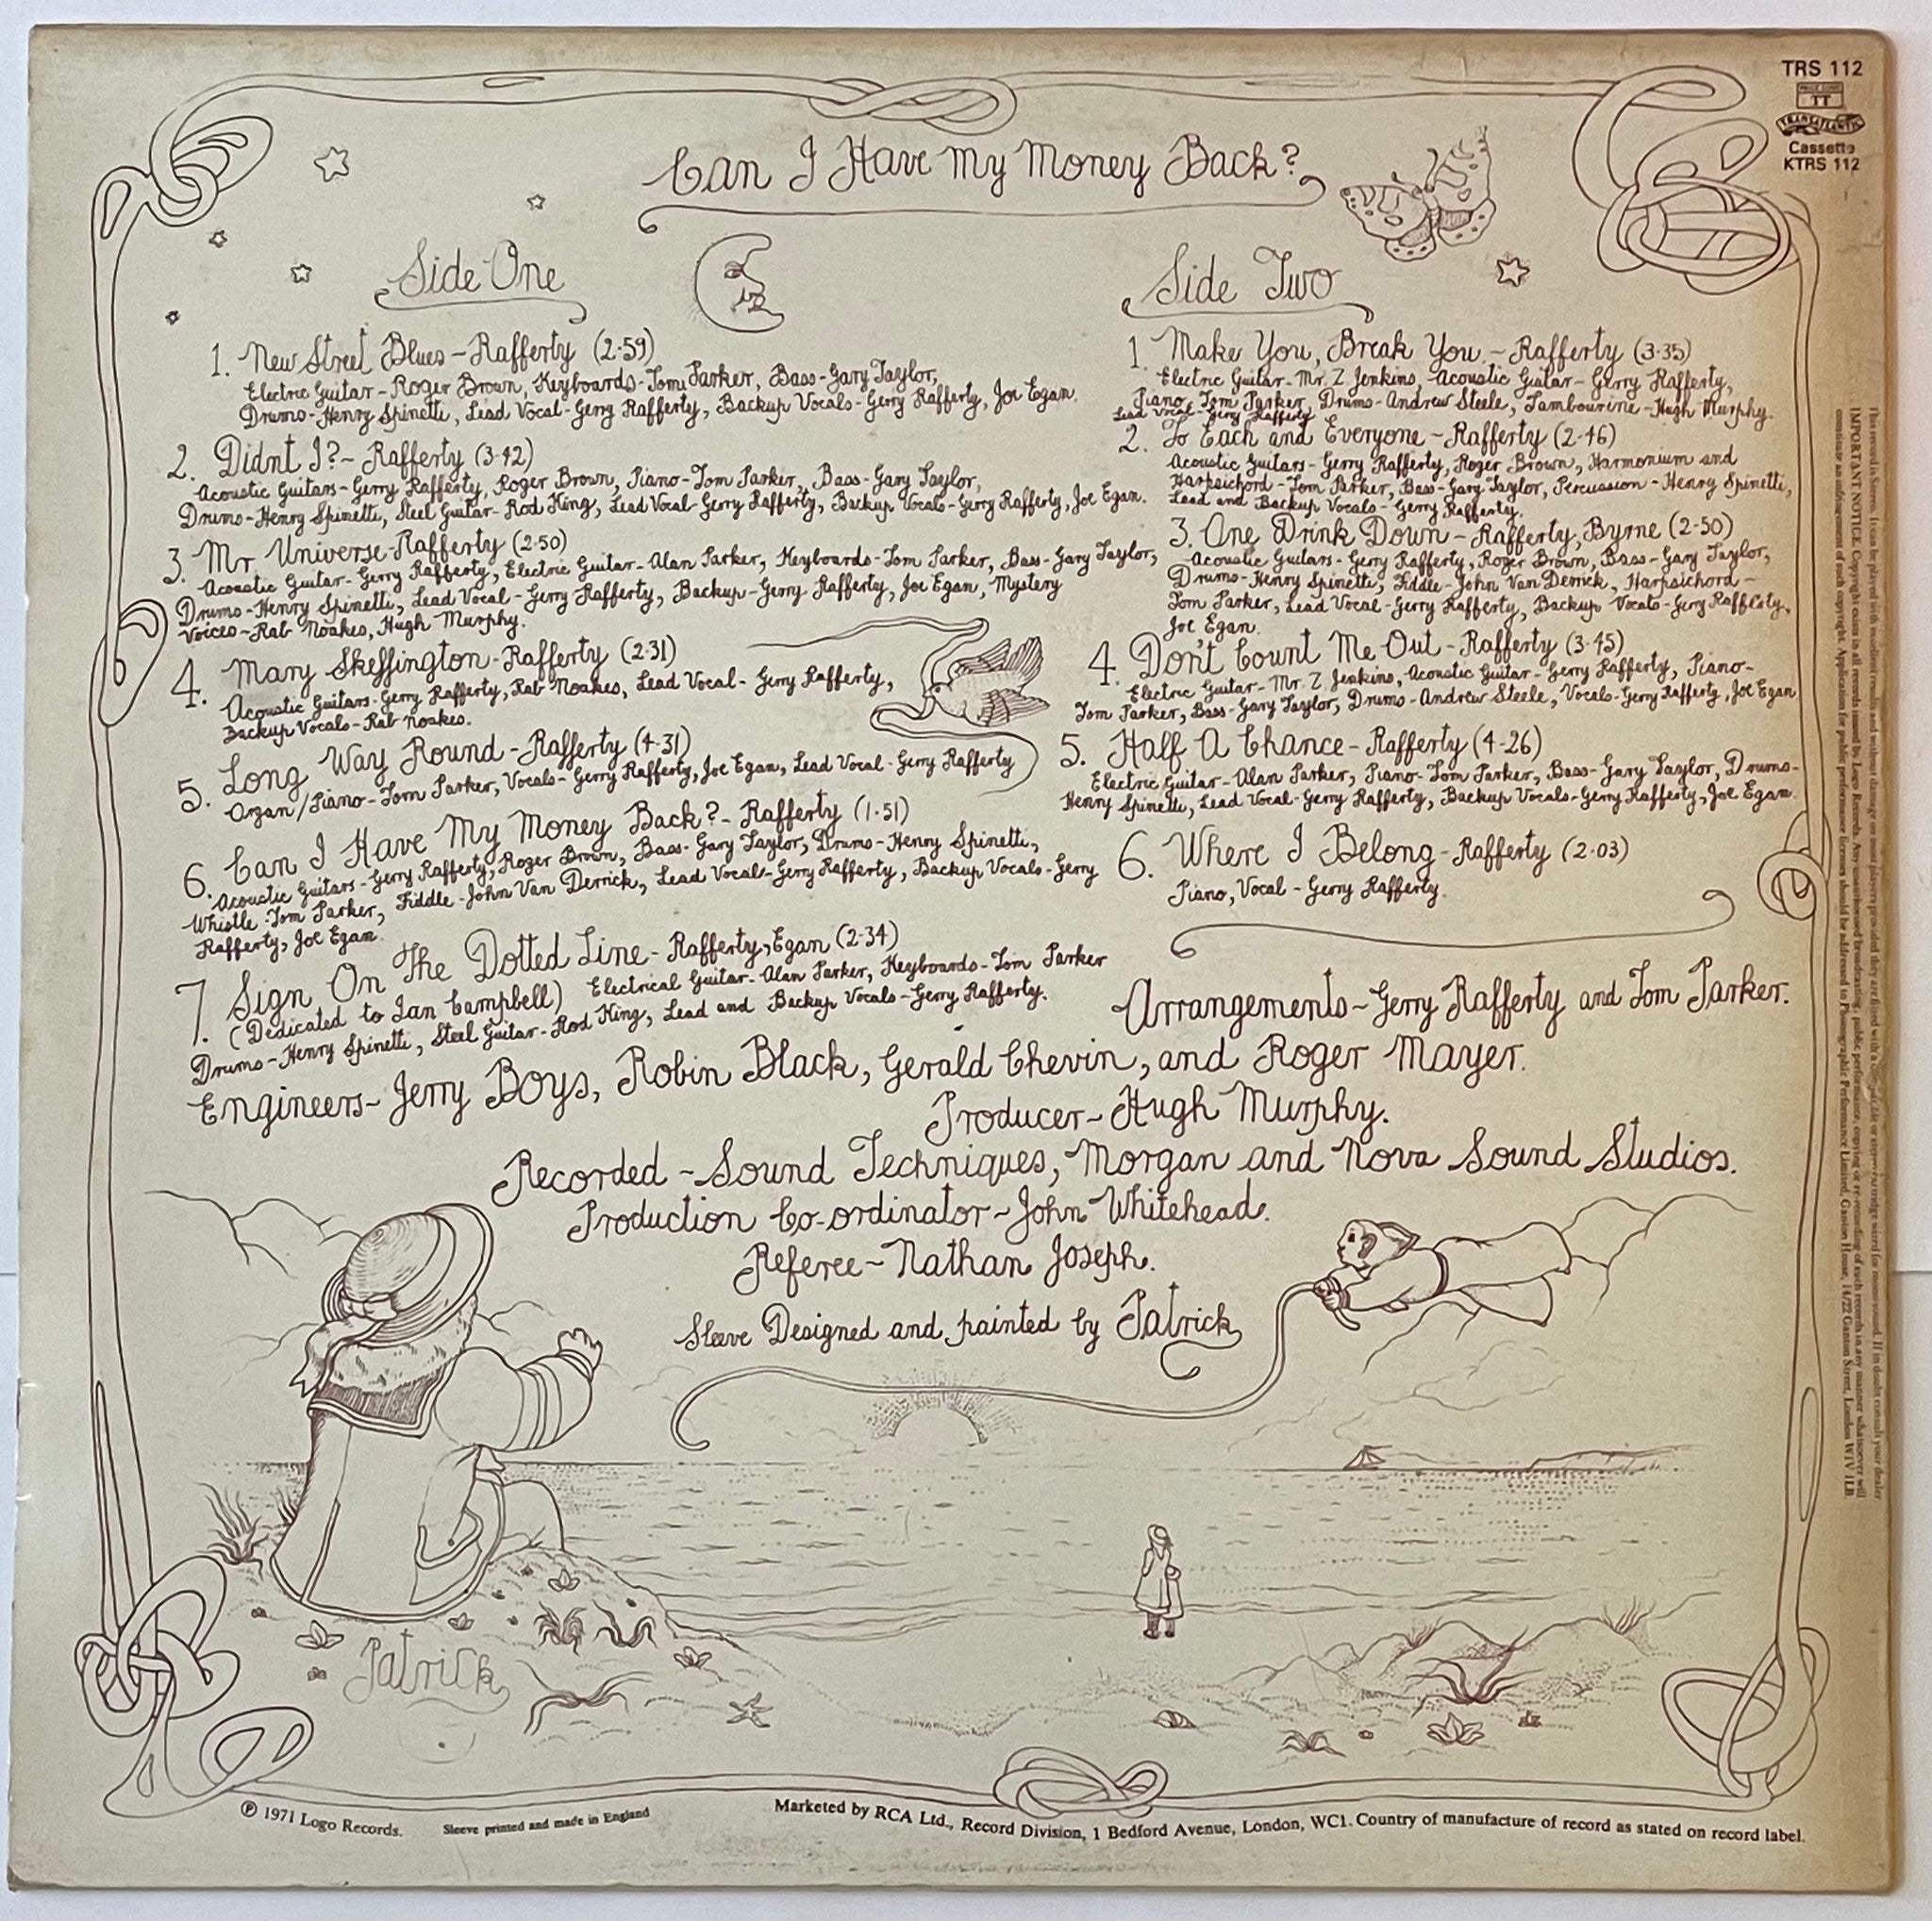 TRS 112
PRICE CODE
TT
TRANSATLANTIC
Cassette
KTRS 112
Can I Have My Money Back?
Side One
1. New Street Blues - Rafferty (2·59)
Electric Guitar - Roger Brown, Keyboards - Tom Parker, Bass - Gary Taylor,
Drums - Henry Spinetti, Lead Vocal - Gerry Rafferty, Backup Vocals - Gerry Rafferty, Joe Egan.
2. Didnt I? - Rafferty (3·42)
Acoustic Guitars - Gerry Rafferty, Roger Brown, Piano - Tom Parker, Bass - Gary Taylor,
Drums - Henry Spinetti, Steel Guitar - Rod King, Lead Vocal - Gerry Rafferty, Backup Vocals - Gerry Rafferty, Joe Egan.
3. Mr Universe - Rafferty (2·50)
Acoustic Guitar - Gerry Rafferty, Electric Guitar - Alan Parker, Keyboards - Tom Parker, Bass - Gary Taylor,
Drums - Henry Spinetti, Lead Vocal - Gerry Rafferty, Backup - Gerry Rafferty, Joe Egan, Mystery
Voices - Rab Noakes, Hugh Murphy.
4. Mary Skeffington - Rafferty (2·31)
Acoustic Guitars - Gerry Rafferty, Rab Noakes, Lead Vocal - Gerry Rafferty,
Backup Vocals - Rab Noakes.
5. Long Way Round - Rafferty (4·31)
Organ/Piano - Tom Parker, Vocals - Gerry Rafferty, Joe Egan, Lead Vocal - Gerry Rafferty
6. Can I Have My Money Back? - Rafferty (1·51)
Acoustic Guitars - Gerry Rafferty, Roger Brown, Bass - Gary Taylor, Drums - Henry Spinetti,
Whistle - Tom Parker, Fiddle - John Van Derrick, Lead Vocals - Gerry Rafferty, Backup Vocals - Gerry
Rafferty, Joe Egan.
7. Sign On The Dotted Line - Rafferty, Egan (2·34)
(Dedicated to Ian Campbell) Electrical Guitar - Alan Parker, Keyboards - Tom Parker
Drums - Henry Spinetti, Steel Guitar - Rod King, Lead and Backup Vocals - Gerry Rafferty.
Side Two
1 Make You, Break You. - Rafferty (3·35)
Electric Guitar - Mr. Z Jenkins, Acoustic Guitar - Gerry Rafferty,
Piano - Tom Parker, Drums - Andrew Steele, Tambourine - Hugh Murphy.
Lead Vocal - Gerry Rafferty
2. To Each and Everyone - Rafferty (2·46)
Acoustic Guitars - Gerry Rafferty, Roger Brown, Harmonium and
Harpsichord - Tom Parker, Bass - Gary Taylor, Percussion - Henry Spinetti,
Lead and Backup Vocals - Gerry Rafferty.
3. One Drink Down - Rafferty, Byrne (2·50)
Acoustic Guitars - Gerry Rafferty, Roger Brown, Bass - Gary Taylor,
Drums - Henry Spinetti, Fiddle - John Van Derrick, Harpsichord -
Tom Parker, Lead Vocal - Gerry Rafferty, Backup Vocals - Gerry Rafferty,
Joe Egan.
4. Don't Count Me Out - Rafferty (3·45)
Electric Guitar - Mr. Z Jenkins, Acoustic Guitar - Gerry Rafferty, Piano -
Tom Parker, Bass - Gary Taylor, Drums - Andrew Steele, Vocals - Gerry Rafferty, Joe Egan
5. Half A Chance - Rafferty (4·26)
Electric Guitar - Alan Parker, Piano - Tom Parker, Bass - Gary Taylor, Drums -
Henry Spinetti, Lead Vocal - Gerry Rafferty, Backup Vocals - Gerry Rafferty, Joe Egan.
6. Where I Belong - Rafferty (2·03)
Piano, Vocal - Gerry Rafferty.
Arrangements - Gerry Rafferty and Tom Parker.
Engineers - Jerry Boys, Robin Black, Gerald Chevin, and Roger Mayer.
Producer - Hugh Murphy.
Recorded - Sound Techniques, Morgan and Nova Sound Studios.
Production Co-ordinator - John Whitehead.
Referee - Nathan Joseph.
Sleeve Designed and painted by Patrick
Patrick
℗ 1971 Logo Records.
Sleeve printed and made in England
Marketed by RCA Ltd., Record Division, 1 Bedford Avenue, London, WC1. Country of manufacture of record as stated on record label.
This record is Stereo. It can be played with excellent results and without damage on most players provided they are fitted with a compatible or stereo cartridge wired for mono sound. If in doubt consult your dealer
IMPORTANT NOTICE. Copyright exists in all records issued by Logo Records. Any unauthorised broadcasting, public performance, copying or re-recording of such records in any manner whatsoever will
constitute an infringement of such copyright. Application for public performance licences should be addressed to Phonographic Performance Limited, Ganton House, 14/22 Ganton Street, London W1V 1LB.